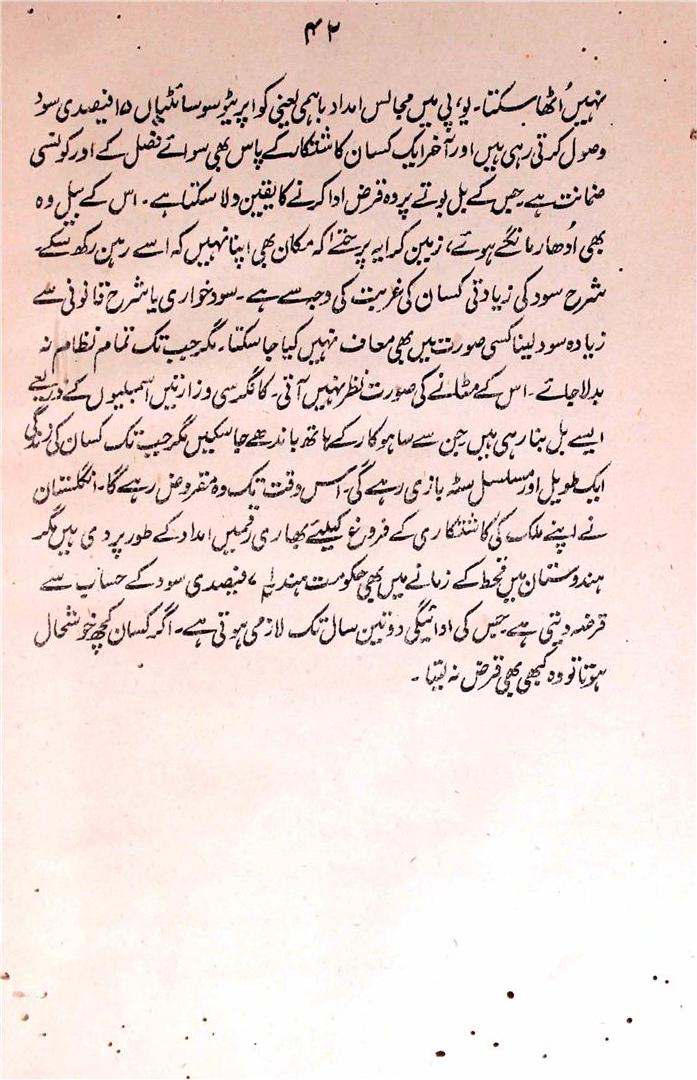 ۴۲
نہیں اُٹھا سکتا۔ یو، پی میں مجالس امداد باہمی یعنی کواپریٹو سوسائٹیاں ۱۵ فیصدی سود
وصول کرتی رہی ہیں اور آخر ایک کسان کاشتکار کے پاس بھی سوائے فصل کے اور کونسی
ضمانت ہے جس کے بل بوتے پر وہ قرض ادا کرنے کا یقین دلا سکتا ہے۔ اس کے بیل وہ
بھی اُدھار مانگے ہوئے، زمین کرایہ پر حتےٰ اکہ مکان بھی اپنا نہیں کہ اسے رہن رکھ سکے۔
شرح سود کی زیادتی کسان کی غربت کی وجہ سے ہے۔ سود خواری یا شرح قانونی سے
زیادہ سود لینا کسی صورت میں بھی معاف نہیں کیا جا سکتا۔ مگر جب تک تمام نظام نہ
بدلا جائے۔ اس کے مٹانے کی صورت نظر نہیں آتی۔ کانگرسی وزارتیں اسمبلیوں کے ذریعے
ایسے بل بنا رہی ہیں جن سے ساہوکار کے ہاتھ باندھے جا سکیں مگر جب تک کسان کی زندگی
ایک طویل اور مسلسل سٹہ بازی رہے گی۔ اس وقت تک وہ مقروض رہے گا۔ انگلستان
نے اپنے ملک کی کاشتکاری کے فروغ کیلئے بھاری رقمیں امداد کے طور پر دی ہیں مگر
ہندوستان میں قحط کے زمانے میں بھی حکومت ہند ۷ فیصدی سود کے حساب سے
قرضہ دیتی ہے۔ جس کی ادائیگی دو تین سال تک لازمی ہوتی ہے۔ اگر کسان کچھ خوشحال
ہوتا تو وہ کبھی بھی قرض نہ لیتا۔